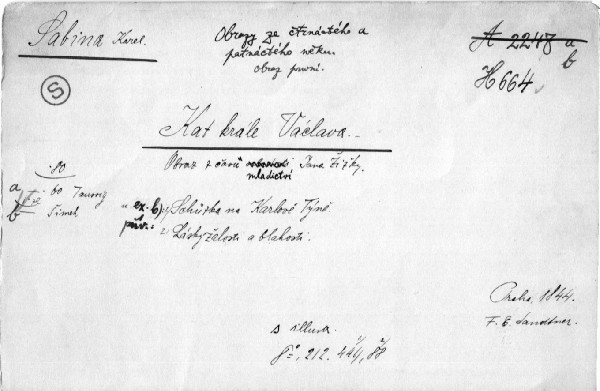 Sabina Karel.
Obrazy ze čtrnáctého a
patnáctého věku.
obraz první.
A 2248 a
b
H 664
S
Kat krále Václava.
Obraz z časů mladictví Jana Žižky.
80
a
b
60
"ex. b)
přív.:
1) Schůzka na Karlově Týně
2) Lásky želosti a blahosti.
Praha, 1844.
F. E. Sandtner.
s illustr.
8°, 212.